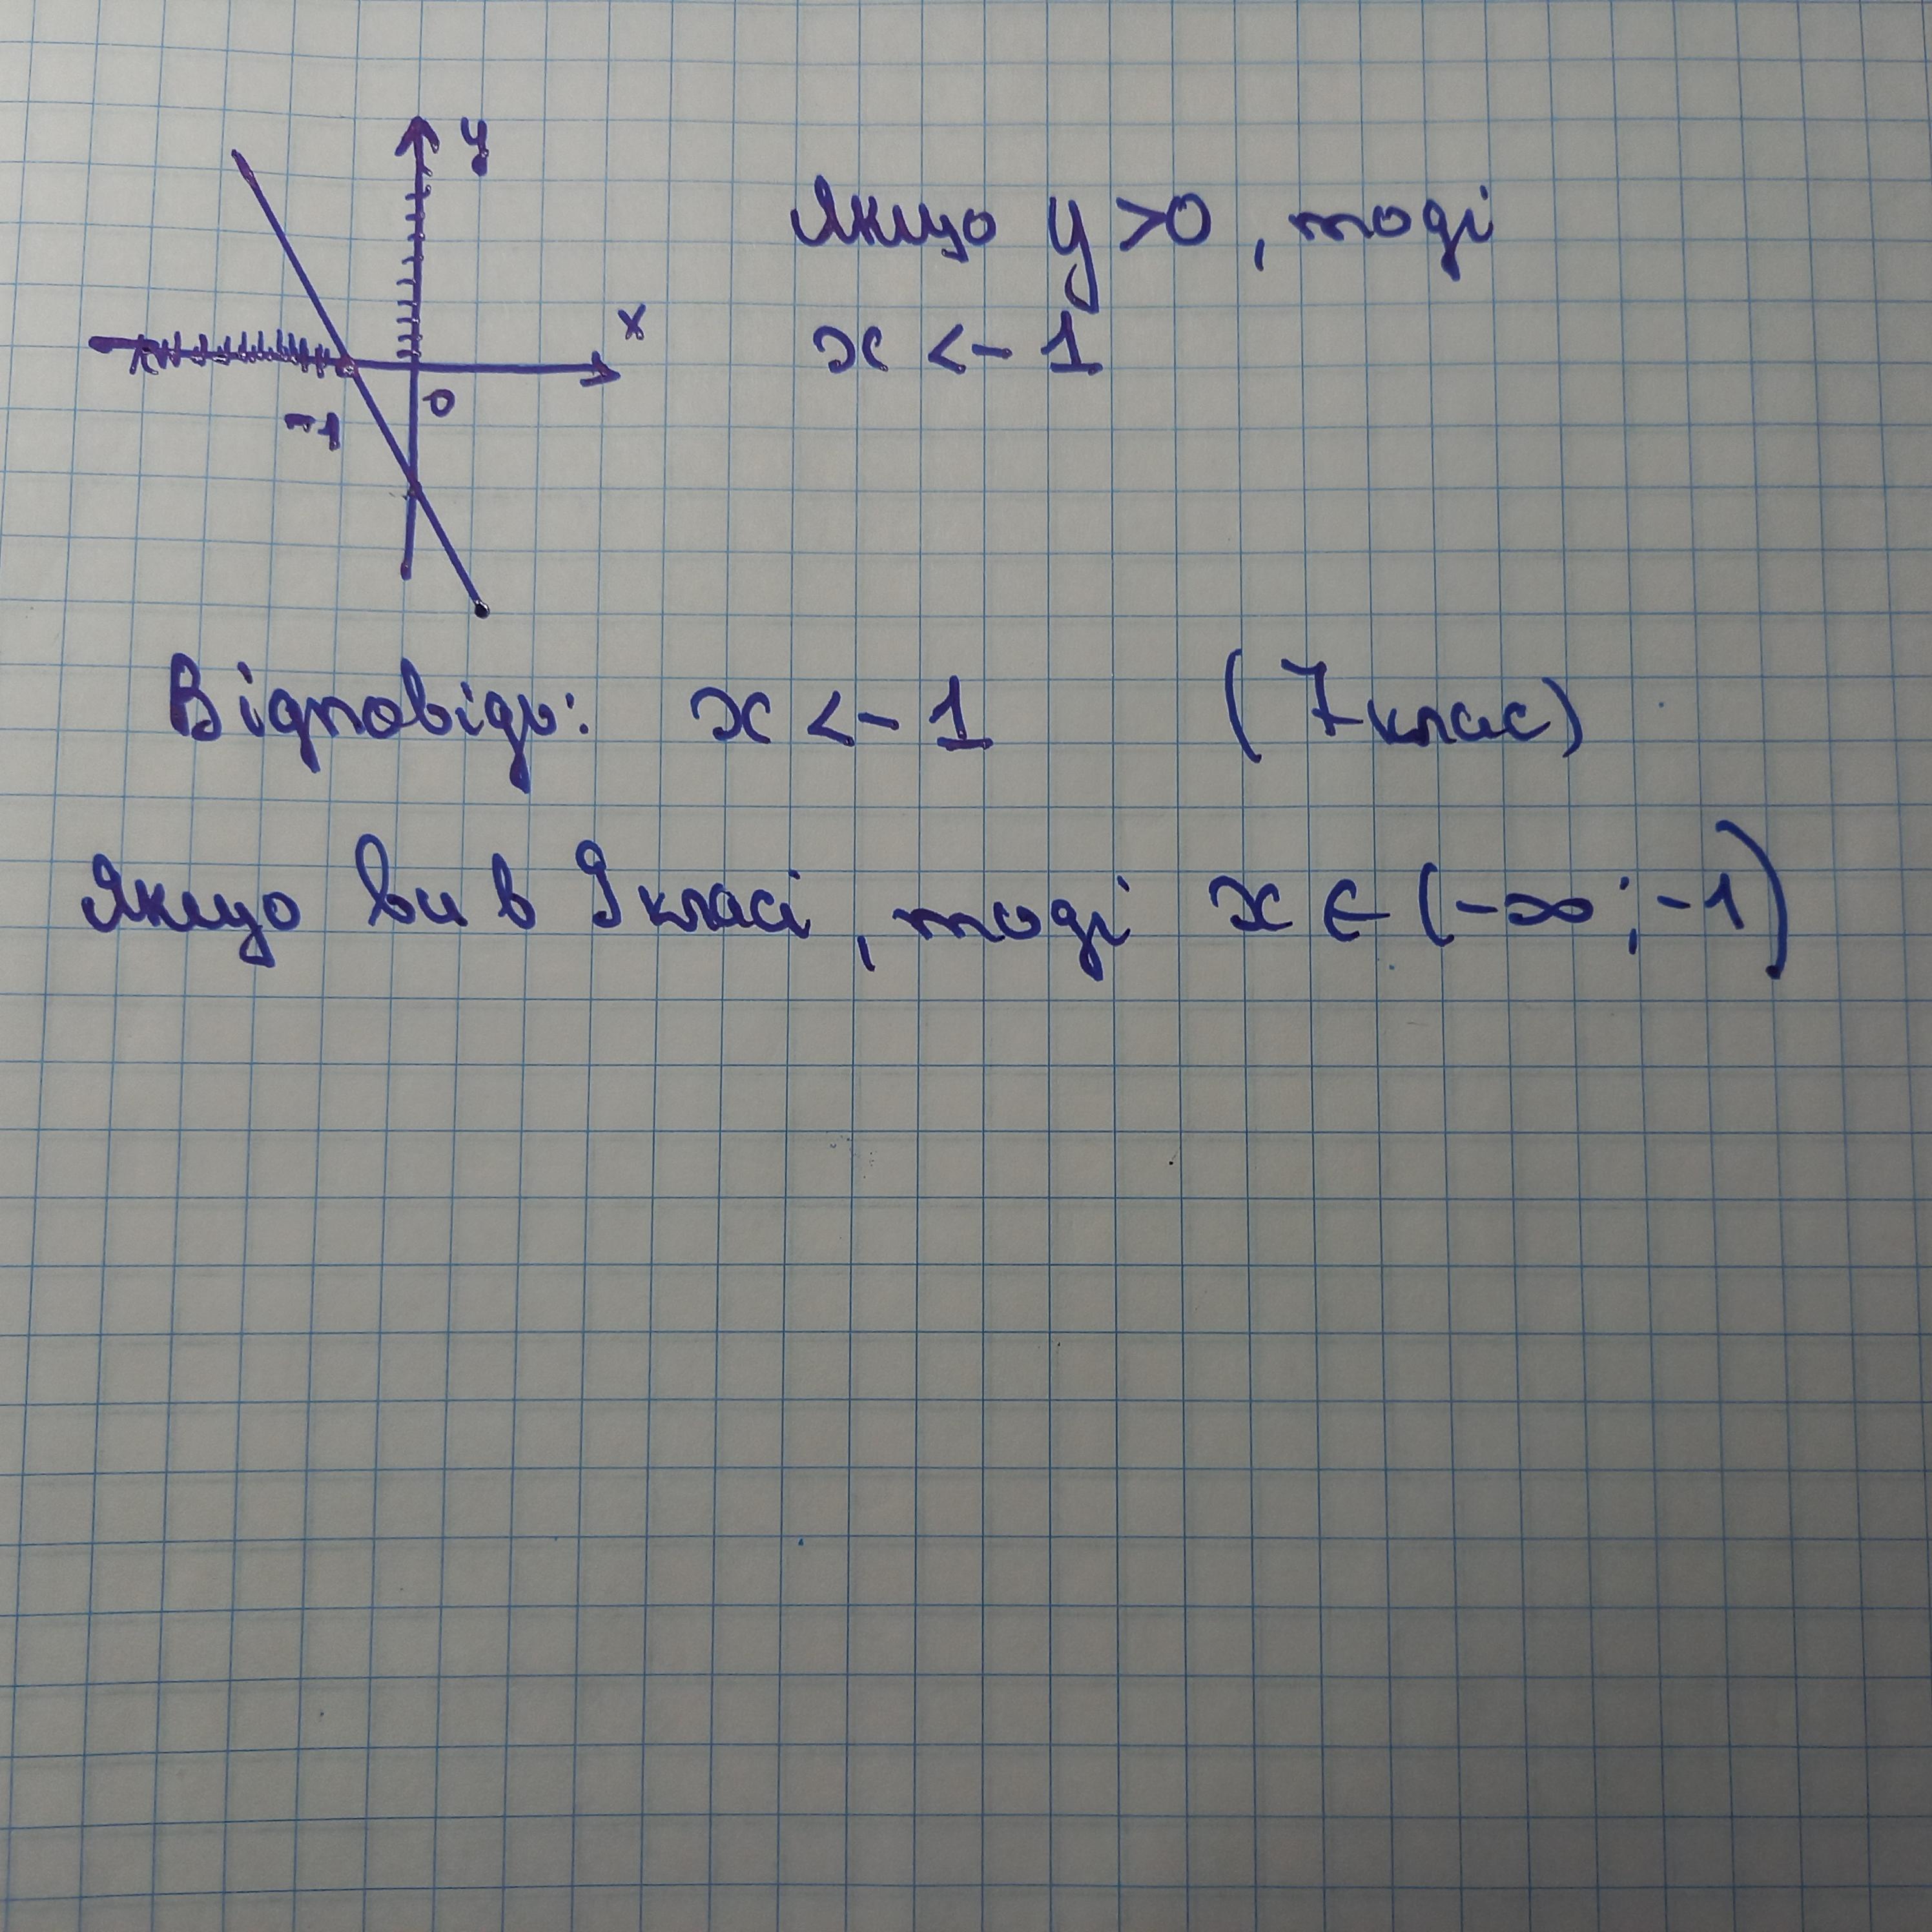 y
Якщо y > 0, тоді
x
x < - 1
0
-1
Відповідь: x < - 1 (7 клас)
Якщо ви в 9 класі, тоді x ∈ (-∞; -1)